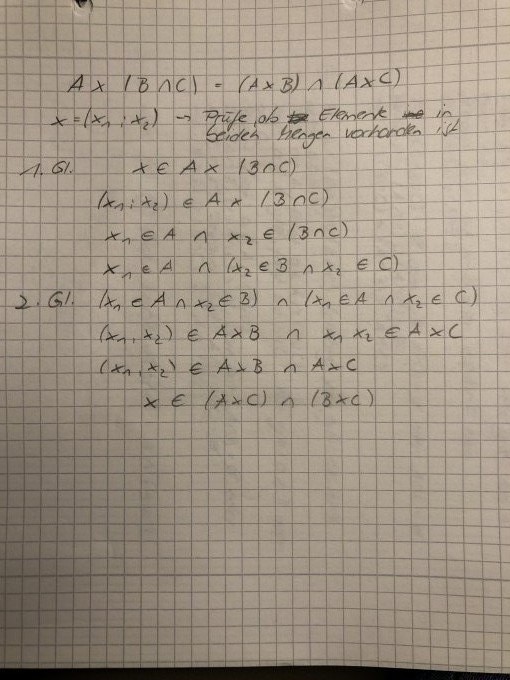 A x (B ∩ C) = (A x B) ∩ (A x C)
x = (x₁ ; x₂) → Prüfe, ob Element in
beiden Mengen vorhanden ist
1. Gl. x ∈ A x (B ∩ C)
(x₁ ; x₂) ∈ A x (B ∩ C)
x₁ ∈ A ∩ x₂ ∈ (B ∩ C)
x₁ ∈ A ∩ (x₂ ∈ B ∩ x₂ ∈ C)
2. Gl. (x₁ ∈ A ∩ x₂ ∈ B) ∩ (x₁ ∈ A ∩ x₂ ∈ C)
(x₁, x₂) ∈ A x B ∩ x₁ x₂ ∈ A x C
(x₁, x₂) ∈ A x B ∩ A x C
x ∈ (A x C) ∩ (B x C)